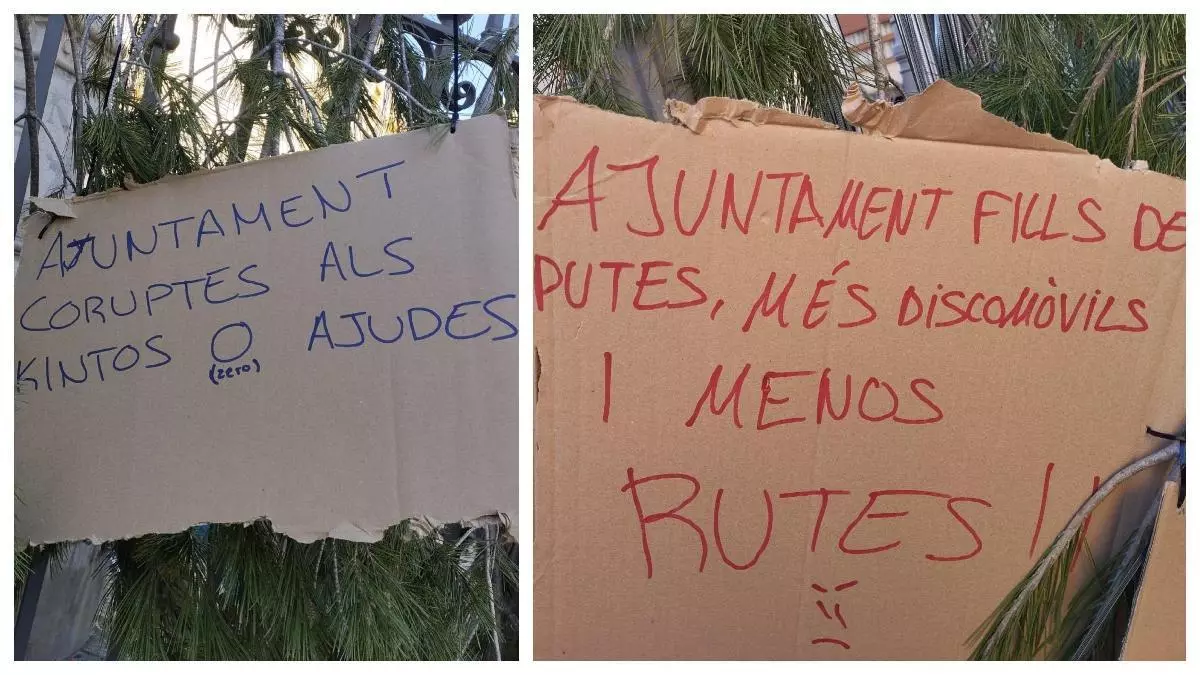 AJUNTAMENT
CORUPTES ALS
KINTOS O AJUDES
(zero)
AJUNTAMENT FILLS DE
PUTES, MÉS DISCOMÒVILS
I MENOS
RUTES!!